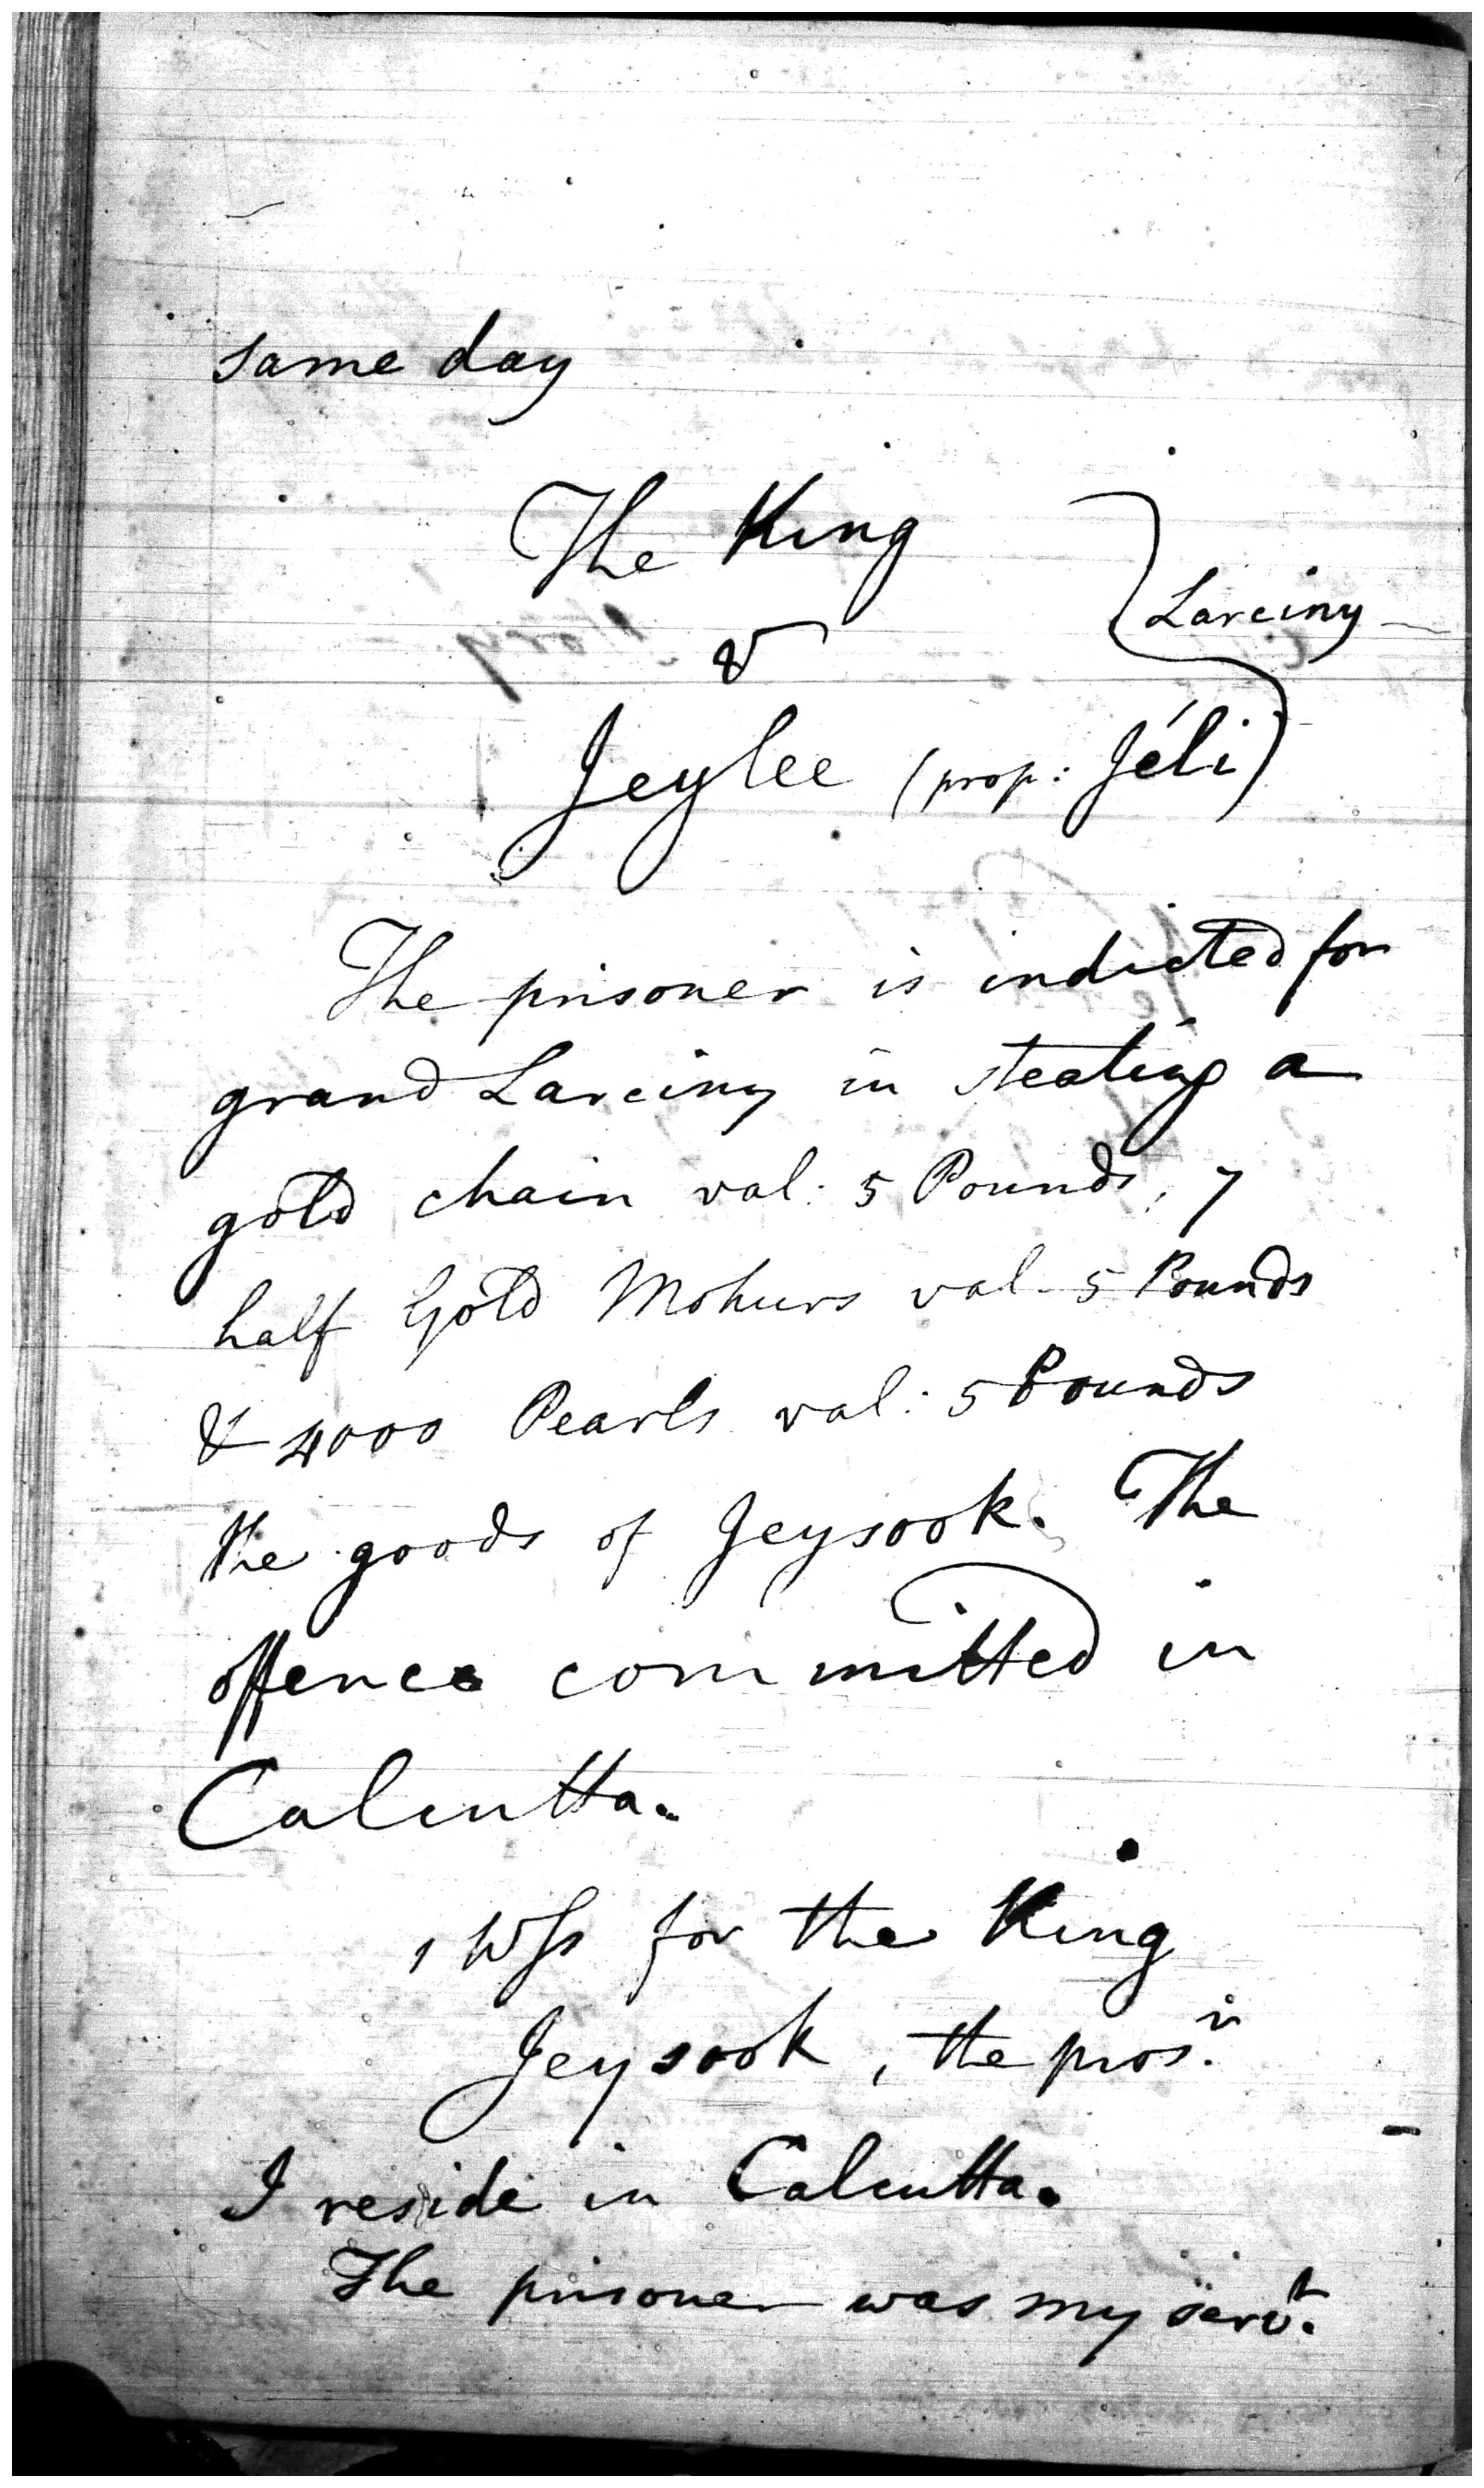 same day
The King
v
Larciny
Jeylee (prop: Jéli)
The prisoner is indicted for
grand Larciny in stealing a
gold chain val: 5 Pounds, 7
half Gold Mohurs val. 5 Pounds
& 4000 Pearls val: 5 Pounds
the goods of Jeysook. The
offence committed in
Calcutta.
1 Wss for the King
Jeysook, the prosr.
I reside in Calcutta.
The prisoner was my servt.